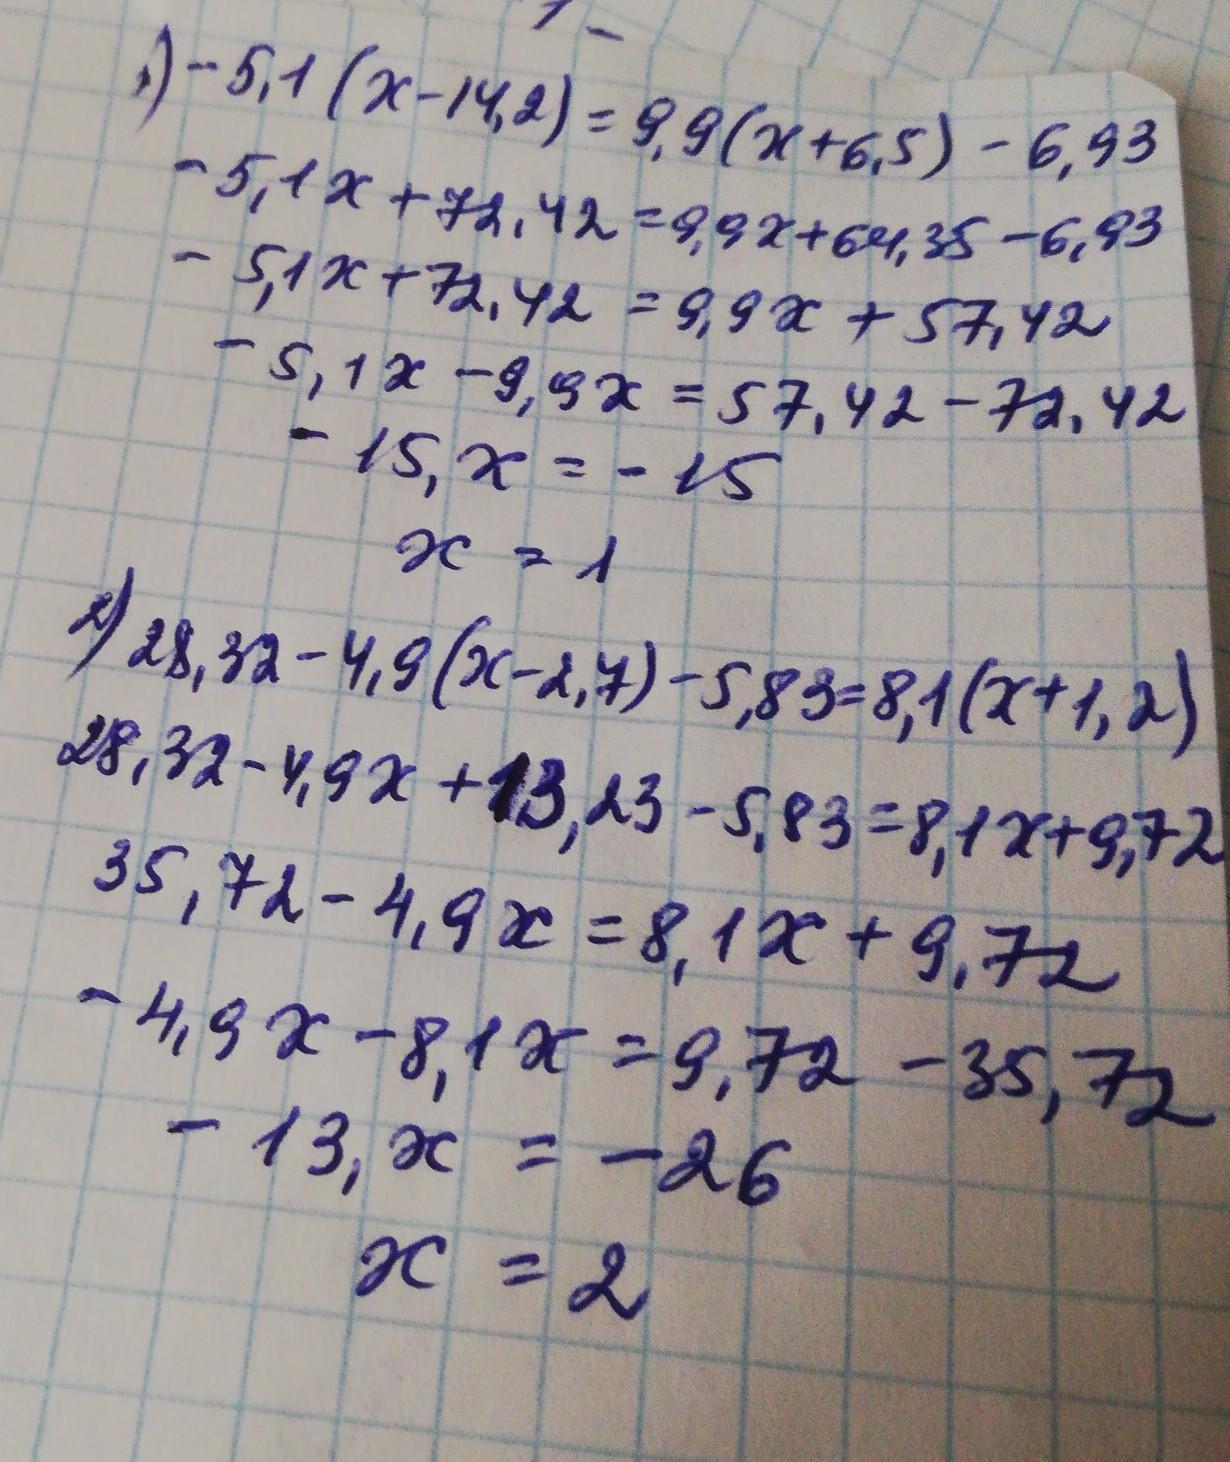 1) -5,1(x-14,2)=9,9(x+6,5)-6,93
-5,1x+72,42=9,9x+64,35-6,93
-5,1x+72,42=9,9x+57,42
-5,1x-9,9x=57,42-72,42
-15,x=-15
x=1
2) 28,32-4,9(x-2,7)-5,83=8,1(x+1,2)
28,32-4,9x+13,23-5,83=8,1x+9,72
35,72-4,9x=8,1x+9,72
-4,9x-8,1x=9,72-35,72
-13,x=-26
x=2